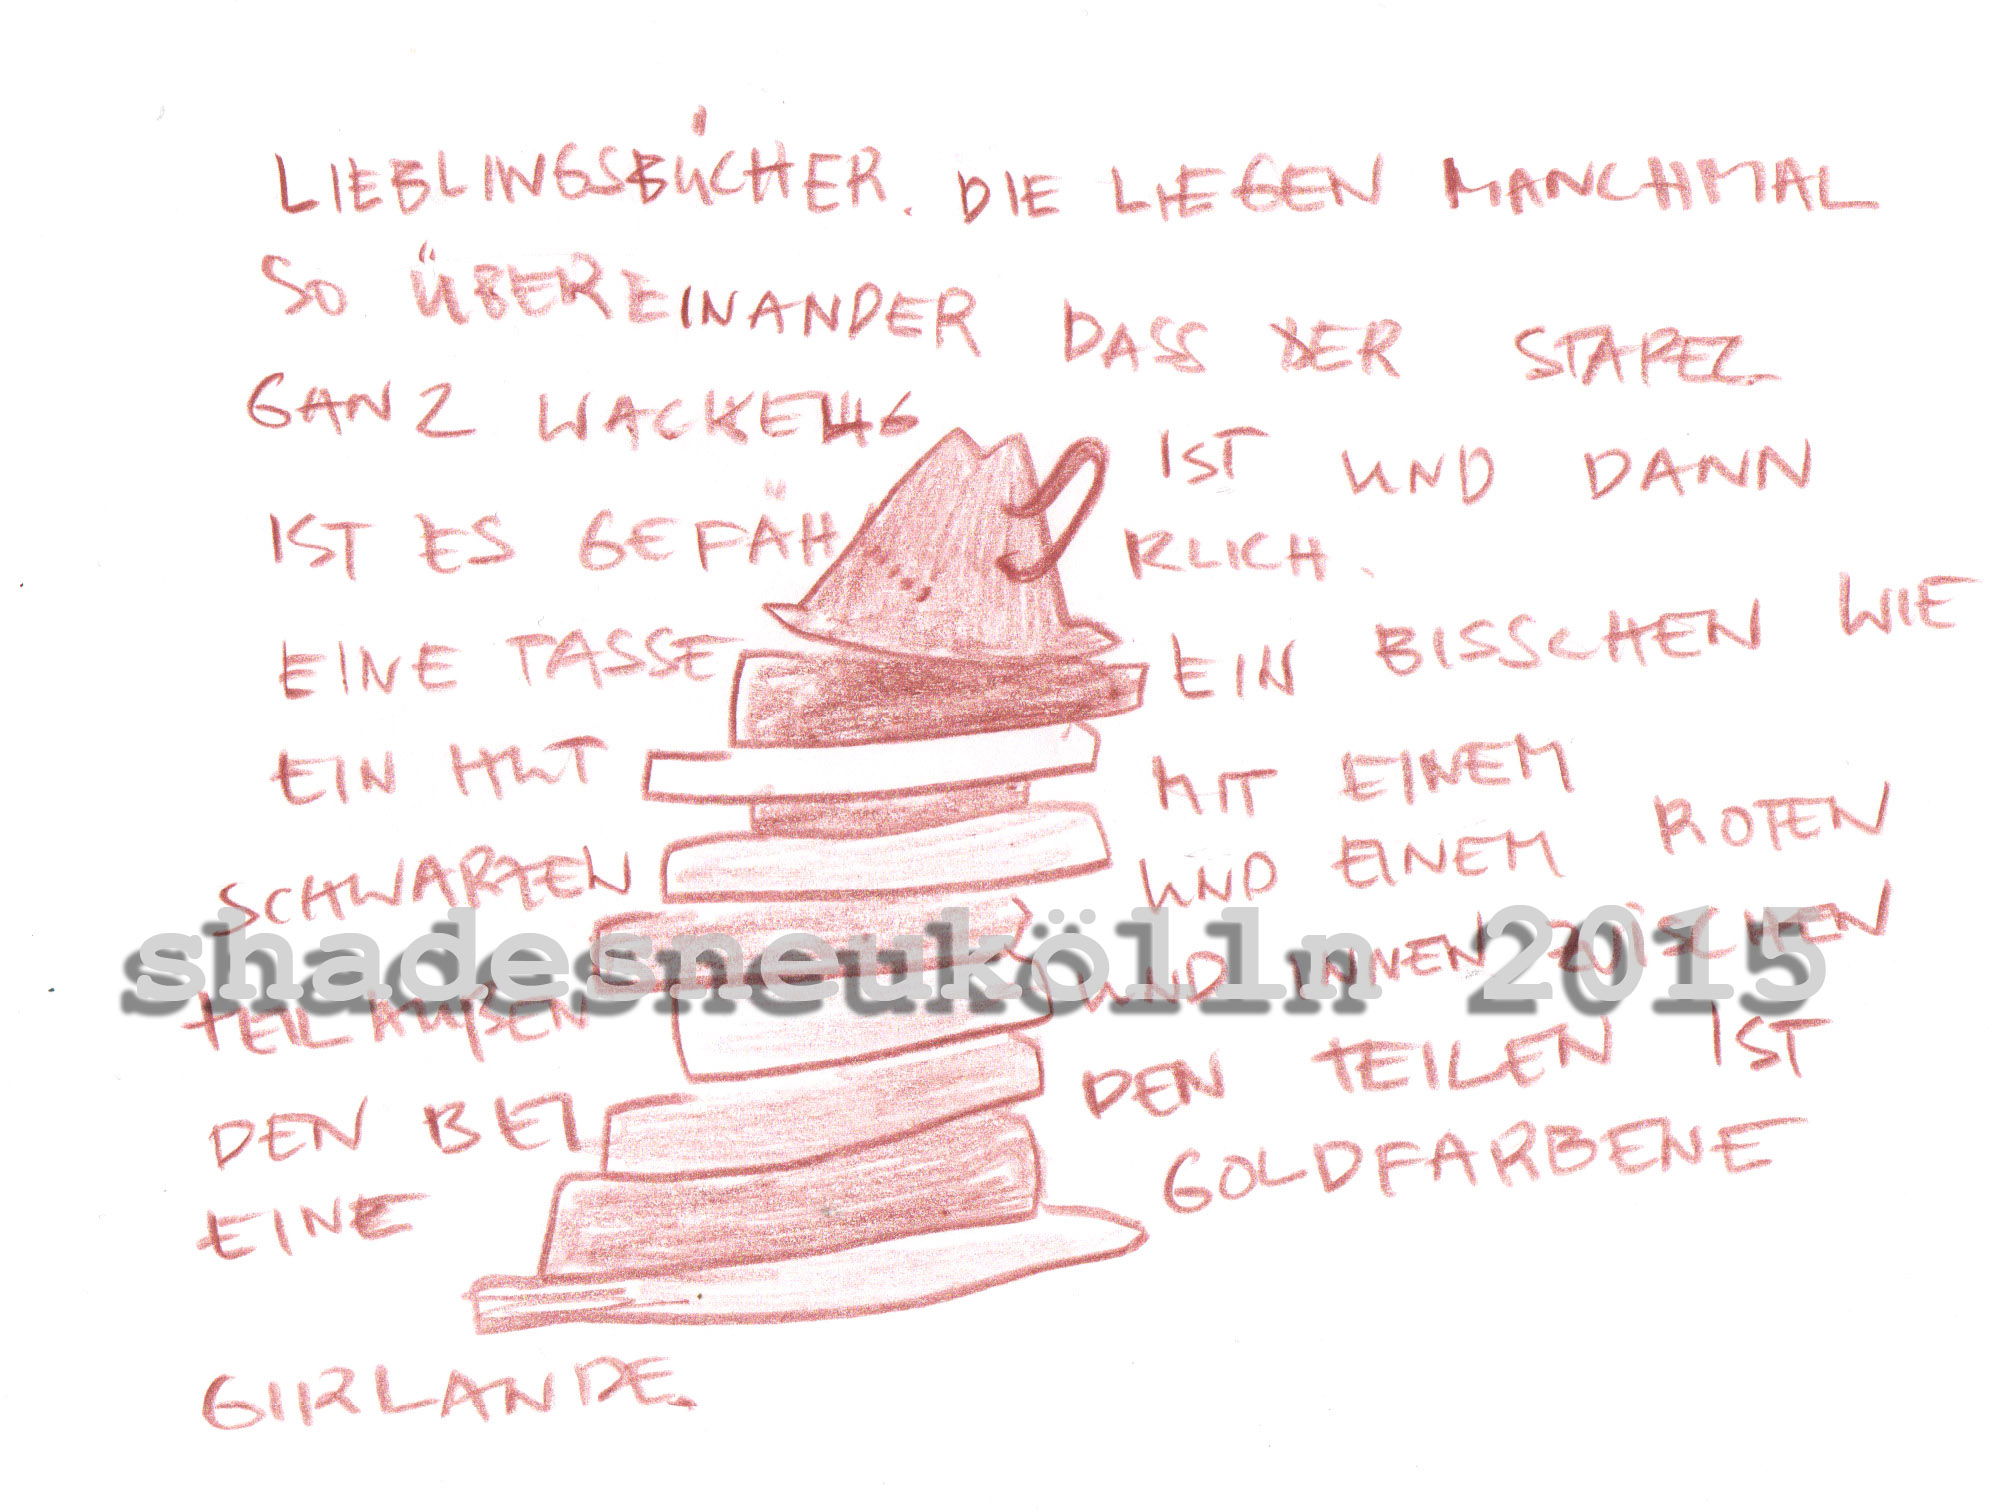 LIEBLINGSBÜCHER. DIE LIEGEN MANCHMAL
SO ÜBEREINANDER DASS DER STAPEL
GANZ WACKELIG IST UND DANN
IST ES GEFÄHRLICH.
EINE TASSE EIN BISSCHEN WIE
EIN HUT MIT EINEM
SCHWARZEN UND EINEM ROTEN
TEIL AUßEN UND INNEN ZWISCHEN
DEN BEI DEN TEILEN IST
EINE GOLDFARBENE
GIRLANDE.
shadesneukölln 2015